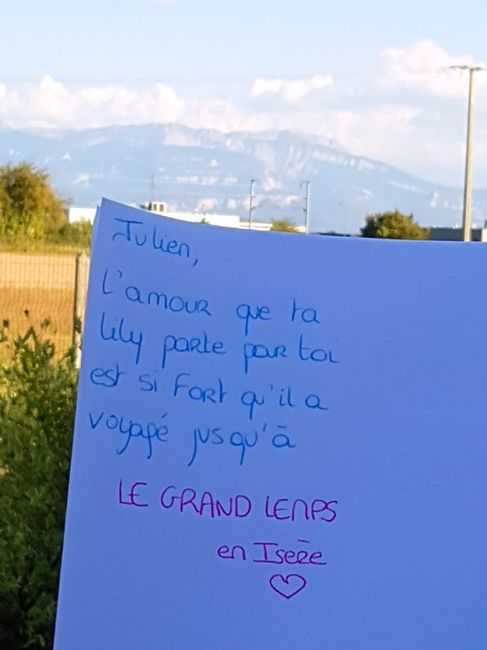 Julien,
L'amour que ta
Lily porte pour toi
est si fort qu'il a
voyagé jusqu'à
LE GRAND LEMPS
en Isère